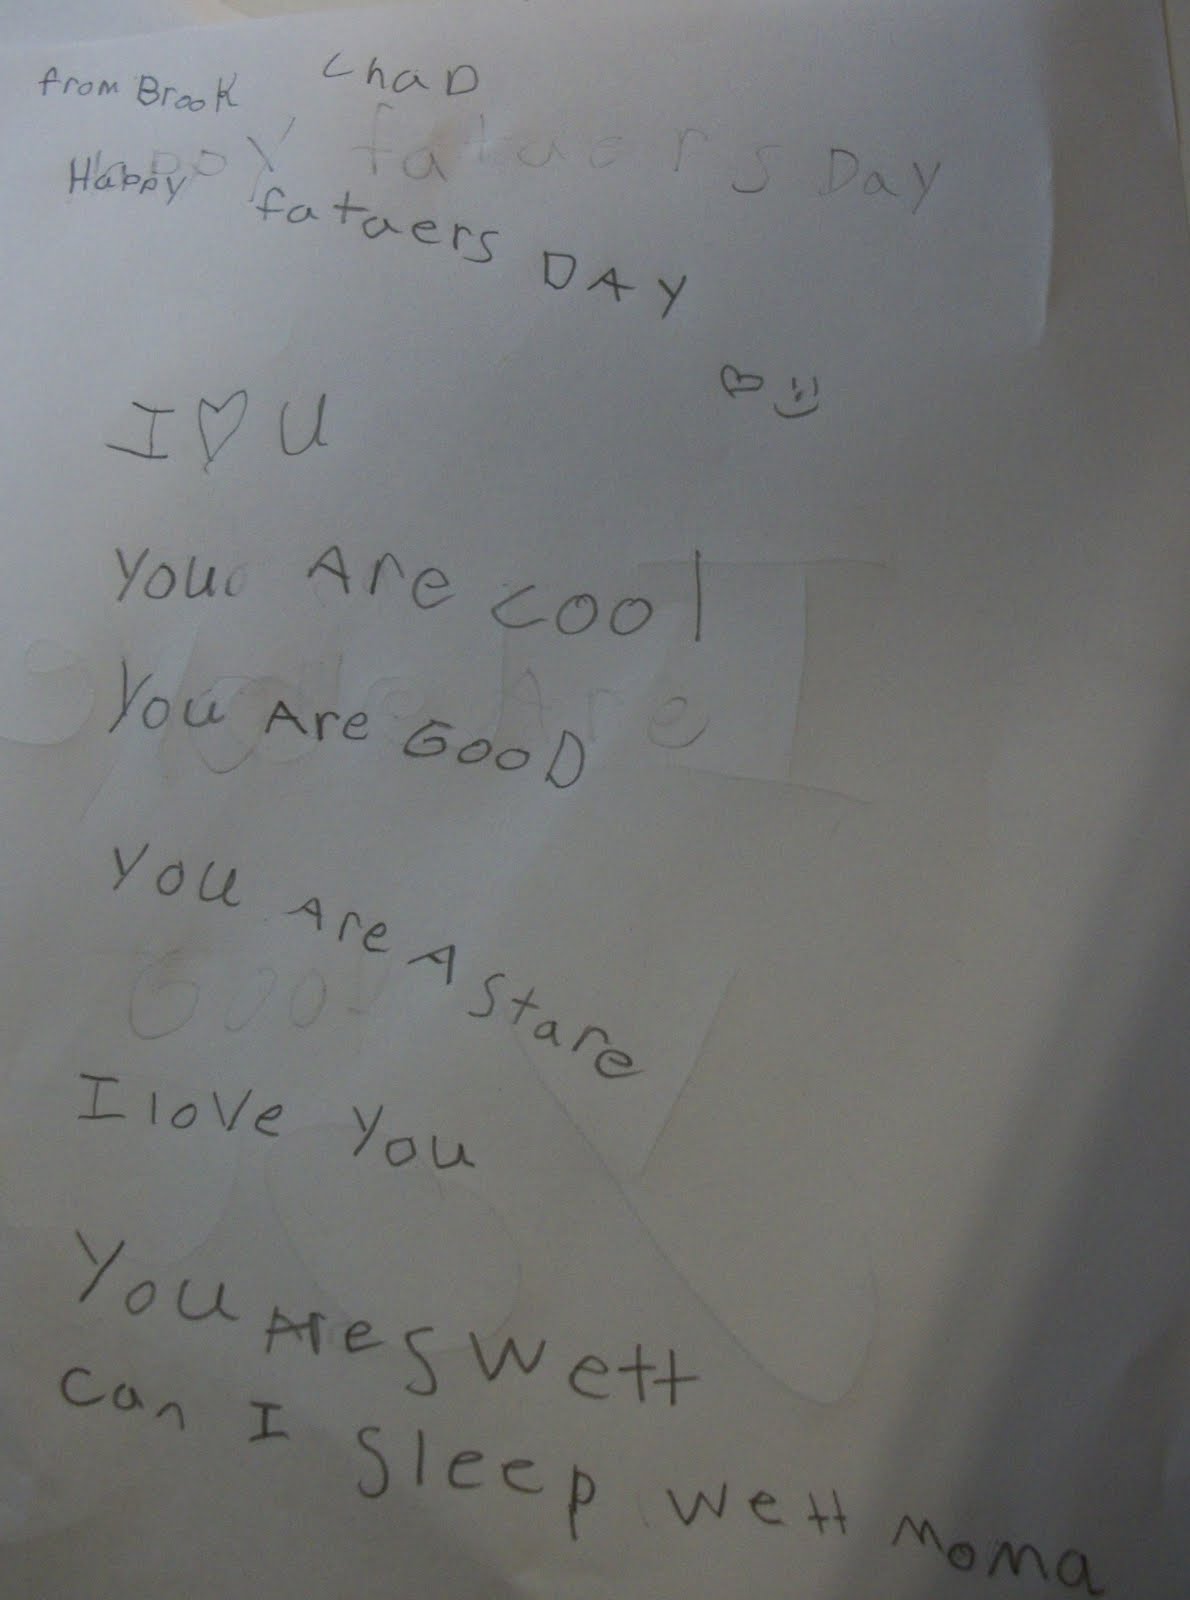 from Brook chaD
Happy fataers Day
Happy fataers DAY
I ♡ U
You Are cool
You Are GooD
You Are A Stare
I love You
You Are Swett
can I Sleep wett moma